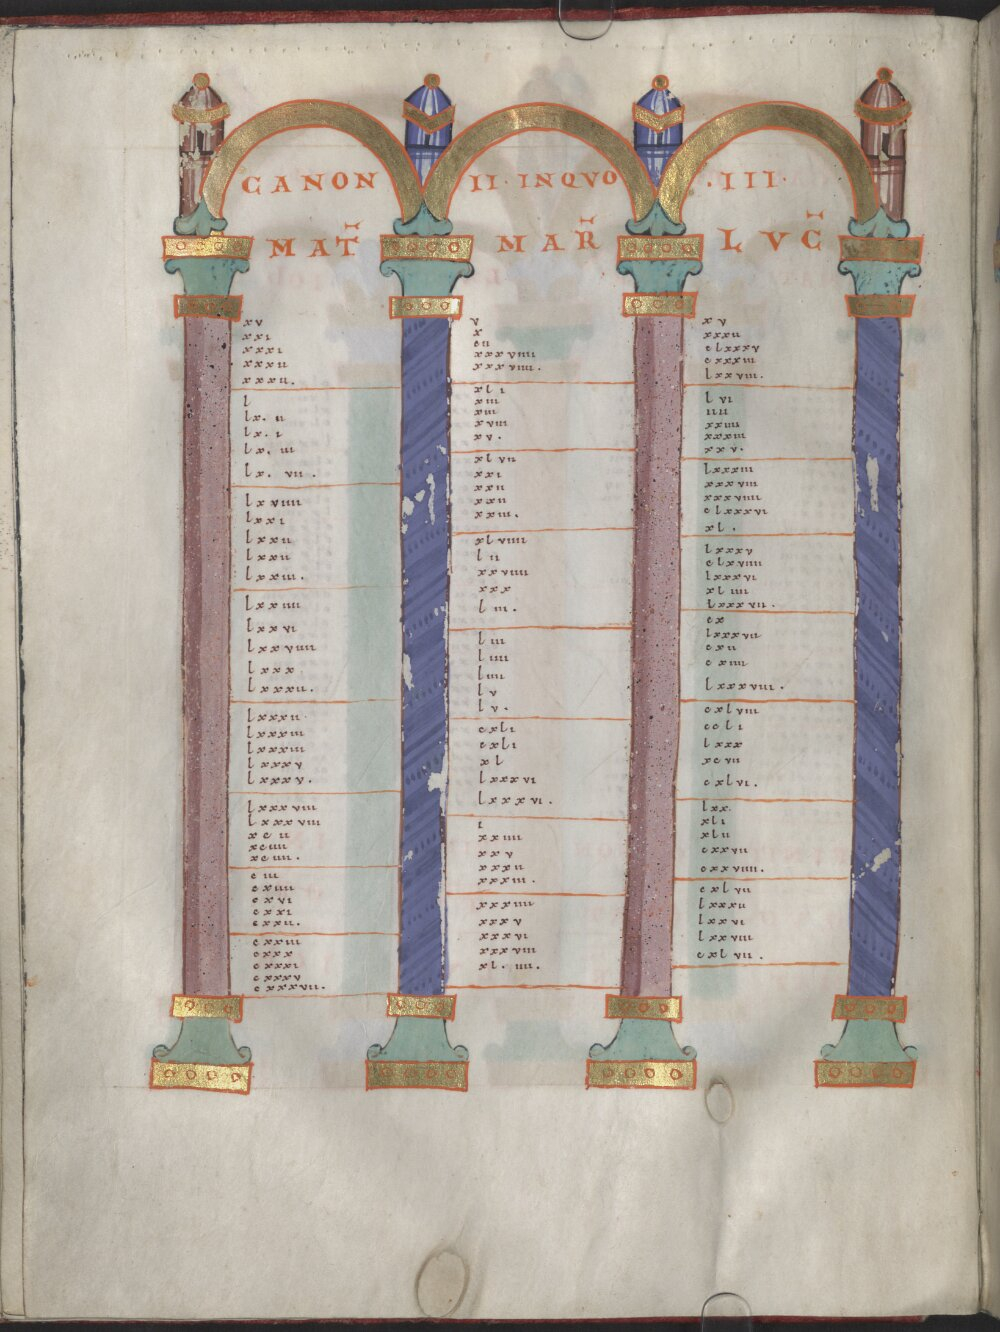 CANON II · INQVO · III ·
MAT̄ MAR̄ LVC̄
xv
xxi
xxxi
xxxii
xxxii.
l
lx. ii
lx. i
lx. iii
lx. vii.
lxviiii
lxxi
lxxii
lxxii
lxxiii.
lxxiiii
lxxvi
lxxviiii
lxxx
lxxxii.
lxxxii
lxxxiii
lxxxiii
lxxxv
lxxxv.
lxxxviii
lxxxviii
xcii
xciiii
xciiii.
ciii
cxiiii
cxvi
cxxi
cxxii.
cxxiii
cxxx
cxxxi
cxxxv
cxxxvii.
v
x
cii
xxxviiii
xxxviiii.
xli
xiii
xiii
xviii
xv.
xlvii
xxi
xxii
xxii
xxiii.
xlviiii
lii
xxviiii
xxx
liii.
liii
liiii
liiii
lv
lv.
cxli
cxli
xl
lxxxvi
lxxxvi.
i
xxiiii
xxv
xxxii
xxxiii.
xxxiiii
xxxv
xxxvi
xxxviii
xl. iiii.
xv
xxxii
clxxxv
cxxxiii
lxxviii.
lvi
iiii
xxiiii
xxxiii
xxv.
lxxxiii
xxxviii
xxxviiii
clxxxvi
xl.
lxxxv
clxviiii
lxxxvi
xliiii
lxxxvii.
cx
lxxxvii
cxii
cxiiii
lxxxviii.
cxlviii
ccli
lxxx
xcvii
cxlvi.
lxx.
xli
xlii
cxxvii
cxxviiii.
cxlvii
lxxxii
lxxvi
lxxviii
cxlvii.